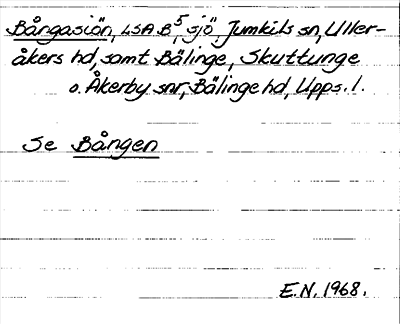 Bångasiön, LSA B⁵, sjö Jumkils sn, Uller-
åkers hd, samt Bälinge, Skuttunge
o. Åkerby snr, Bälinge hd, Upps. l.
Se Bången
E.N. 1968.